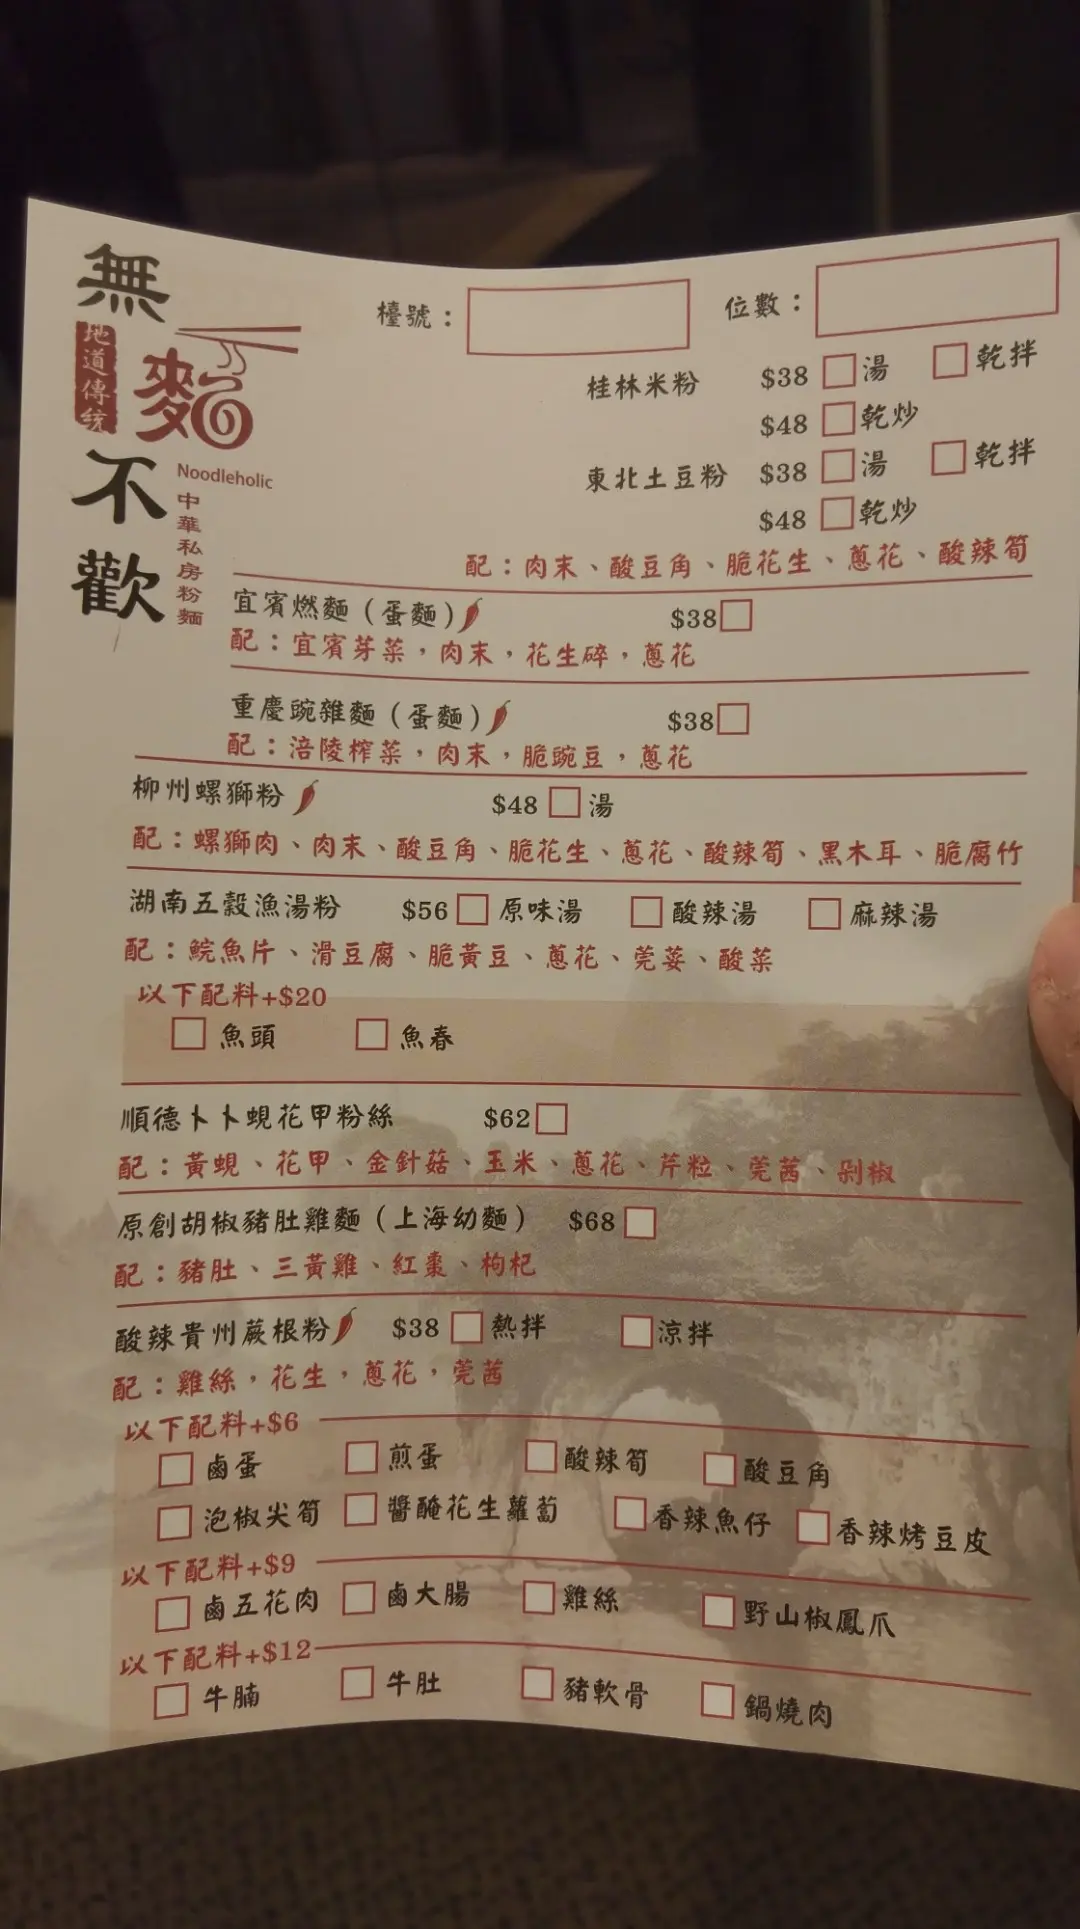 無麵不歡
地道傳統
Noodleholic
中華私房粉麵
檯號：
位數：
桂林米粉 $38 湯 乾拌
$48 乾炒
東北土豆粉 $38 湯 乾拌
$48 乾炒
配：肉末、酸豆角、脆花生、蔥花、酸辣筍
宜賓燃麵（蛋麵） $38
配：宜賓芽菜，肉末，花生碎，蔥花
重慶豌雜麵（蛋麵） $38
配：涪陵榨菜，肉末，脆豌豆，蔥花
柳州螺獅粉 $48 湯
配：螺獅肉、肉末、酸豆角、脆花生、蔥花、酸辣筍、黑木耳、脆腐竹
湖南五穀漁湯粉 $56 原味湯 酸辣湯 麻辣湯
配：鯇魚片、滑豆腐、脆黃豆、蔥花、芫荽、酸菜
以下配料+$20
魚頭 魚春
順德卜卜蜆花甲粉絲 $62
配：黃蜆、花甲、金針菇、玉米、蔥花、芹粒、芫茜、剁椒
原創胡椒豬肚雞麵（上海幼麵） $68
配：豬肚、三黃雞、紅棗、枸杞
酸辣貴州蕨根粉 $38 熱拌 涼拌
配：雞絲，花生，蔥花，芫茜
以下配料+$6
鹵蛋 煎蛋 酸辣筍 酸豆角
泡椒尖筍 醬醃花生蘿蔔 香辣魚仔 香辣烤豆皮
以下配料+$9
鹵五花肉 鹵大腸 雞絲 野山椒鳳爪
以下配料+$12
牛腩 牛肚 豬軟骨 鍋燒肉